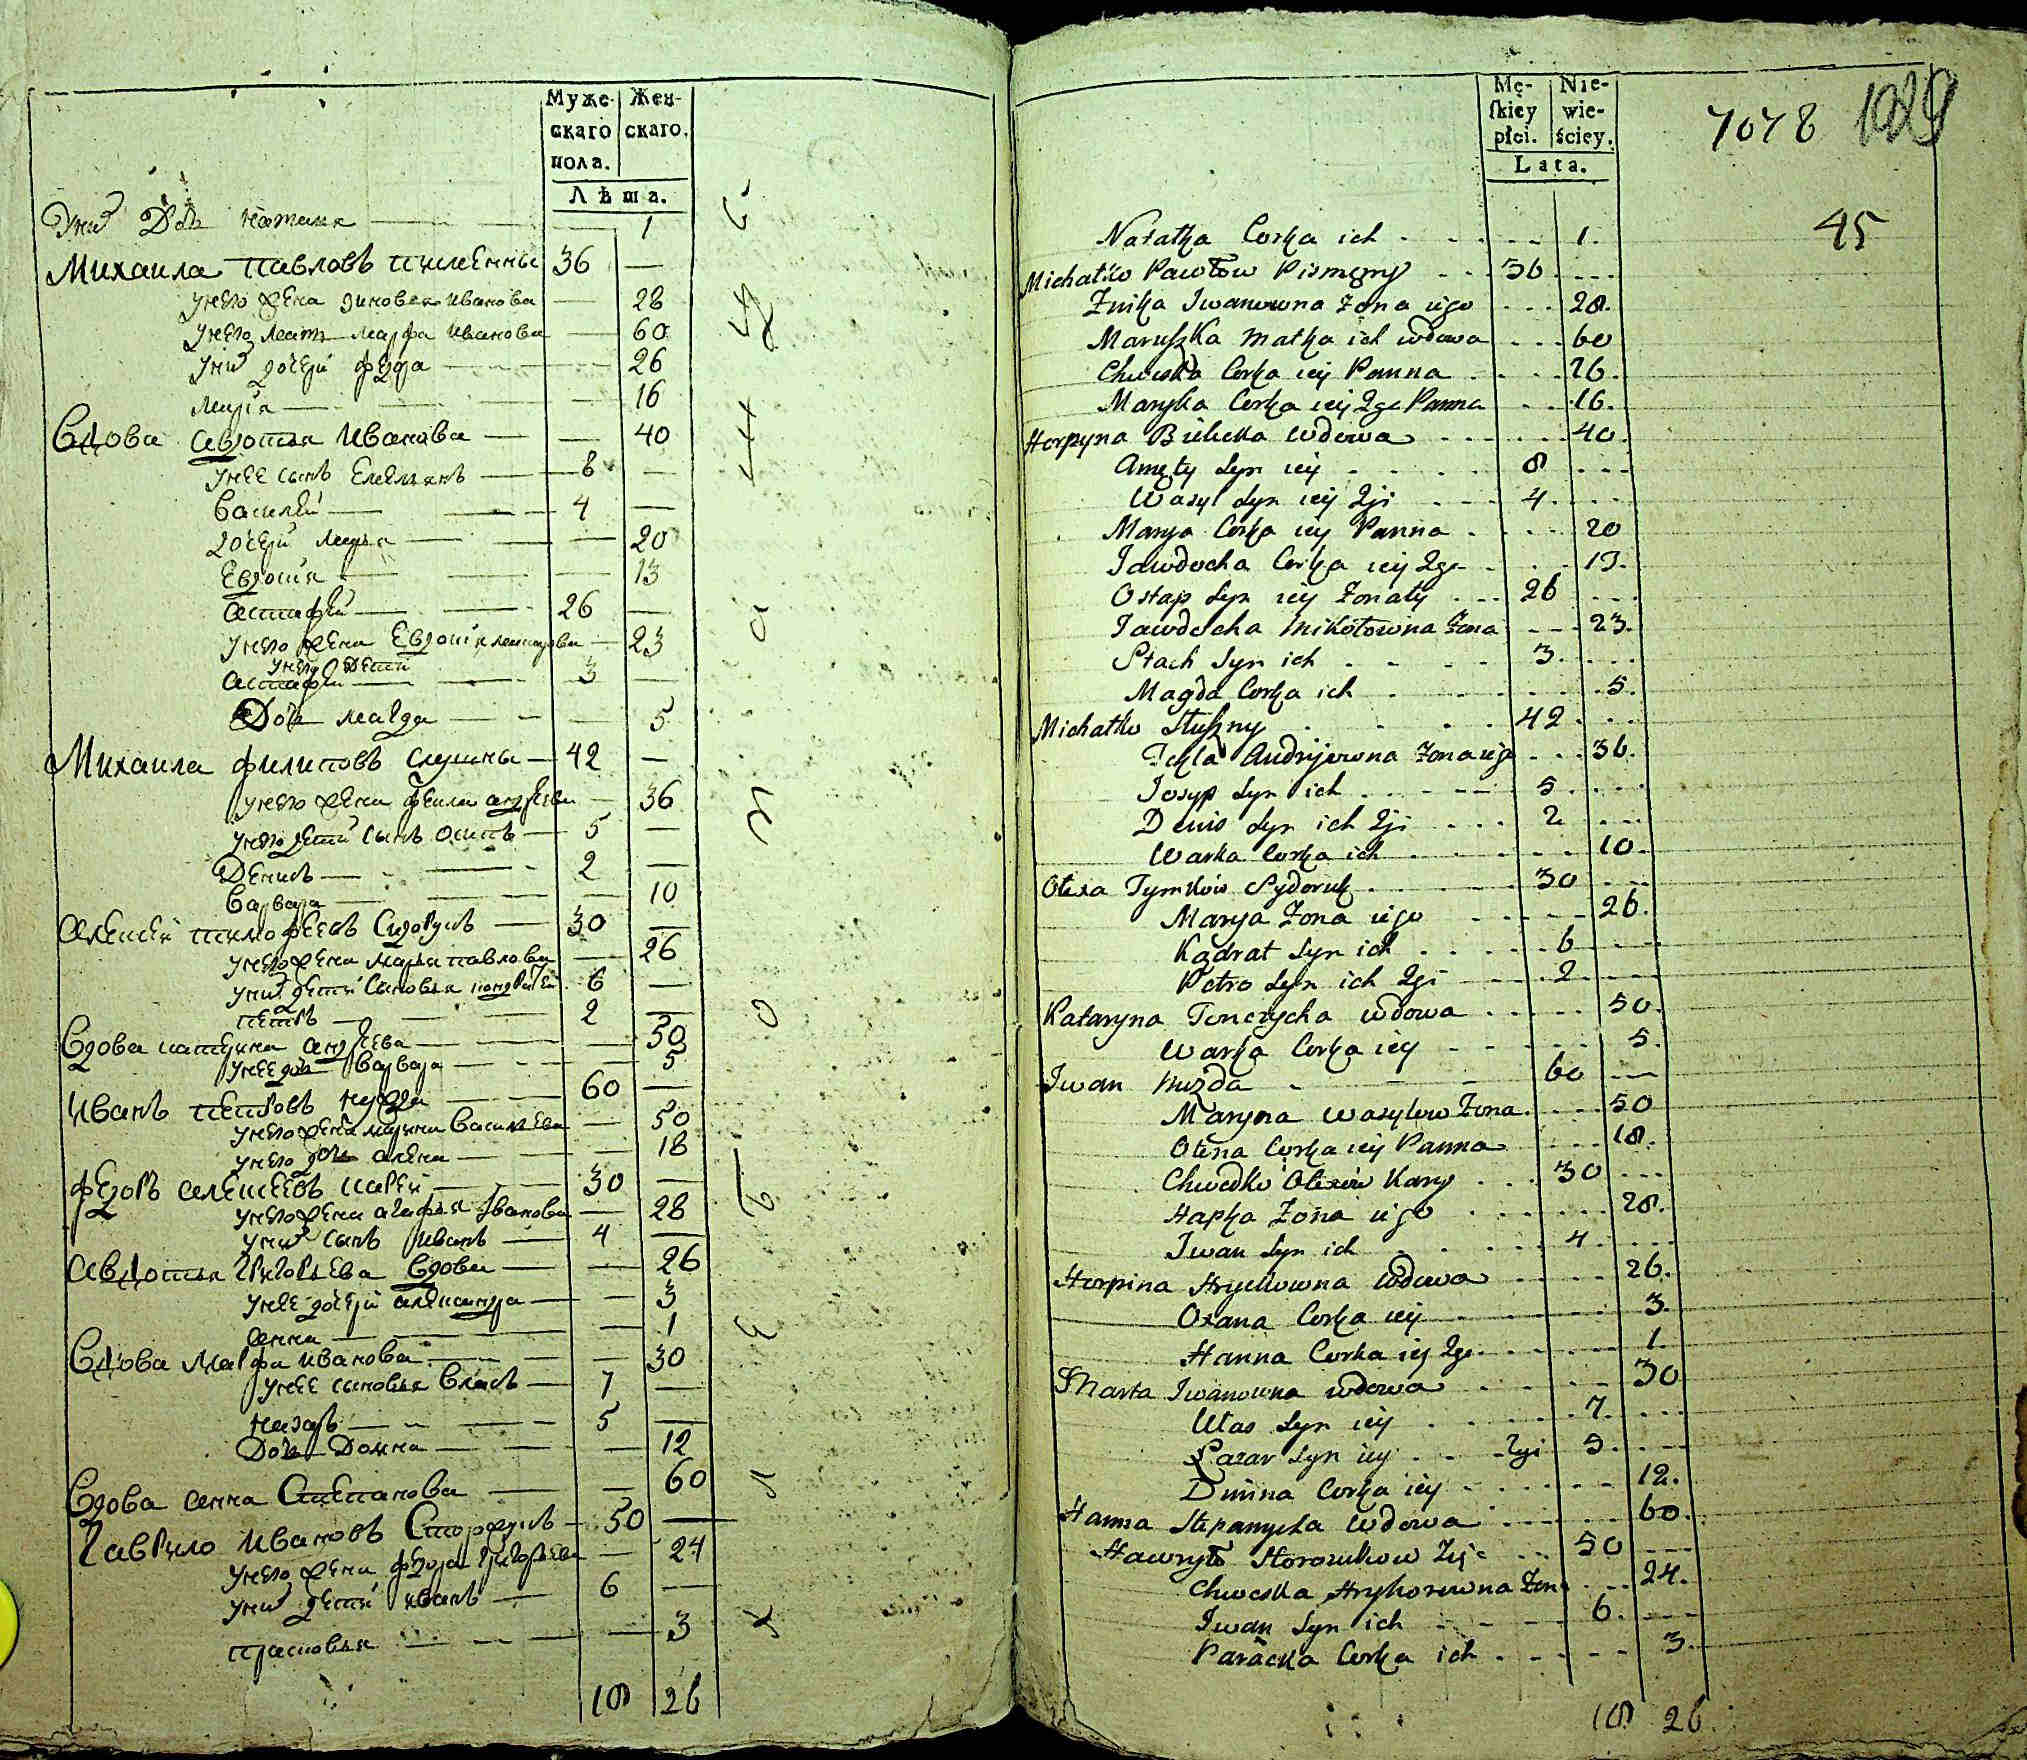 Муже-
скаго
пола.
Жен-
скаго.
Лѣта.
Уних Доч Наталя 1
Михаила Павловъ писменны 36
унего жена Зиновея Иванова 28
унего мать Марфа Иванова 60
уних дочери Федора 26
Марiя 16
Вдова Авдотья Иванова 40
унее сынъ Емелянъ 8
Василей 4
дочери Марья 20
Евдокiя 13
Астафей 26
унего жена Евдокiя 23
унего дети
Астафей 3
Дочь Магда 5
Михаила Филиповъ слушны 42
унего жена Фекла Андреева 36
унего дети сынъ Осипъ 5
Денисъ 2
Варвара 10
Алексей Тимофеевъ Сидорукъ 30
унего жена Марья Павлова 26
уних дети сыновья Кондратей 6
Петръ 2
Вдова Катерина Андреева 50
унее дочь Варвара 5
Иванъ Петровъ Нужда 60
унего жена Марина Васильева 50
унего дочь Алена 18
Федоръ Алексеевъ Карей 30
унего жена Агафья Иванова 28
уних сынъ Иванъ 4
Авдотья Григорьева Вдова 26
унее дочери Александра 3
Анна 1
Вдова Марфа Иванова 30
унее сыновья Власъ 7
Назаръ 5
Дочь Домна 12
Вдова Анна Степанова 60
Гаврило Ивановъ 50
унего жена Федора Григорьева 24
уних дети Иванъ 6
Прасковья 3
18 26
Mę-
skiey
płci.
Nie-
wie-
ściey.
Lata.
7078
45
Natałka Corka ich 1.
Michałko Pawłow Pismęny 36
Zinka Iwanowna Zona iego 28.
Maruszka Matka ich wdowa 60
Chweska Corka iey Panna 26.
Maryka Corka iey 2ga Panna 16.
Horpyna Bielicka wdowa 40.
Syn iey 8
Wasyl Syn iey 2gi 4.
Marya Corka iey Panna 20
Jawdocha Corka iey 2ga 13.
Ostap Syn iey Zonaty 26
Jawdocha Mikołowna Zona 23.
Stach Syn ich 3.
Magda Corka ich 5.
Michałko Słuszny 42
Tekla Andrijewna Zona iego 36.
Josyp Syn ich 5
Denis Syn ich 2gi 2
Warka Corka ich 10.
Olexa Tymkow Sydoruk 30
Marya Zona iego 26.
Kądrat Syn ich 6
Petro Syn ich 2gi 2
Kataryna wdowa 50.
Warka Corka iey 5.
Iwan Nużda 60
Maryna Wasylow Zona 50
Olena Corka iey Panna 18.
Chwedko Olexow Kary 30
Hapka Zona iego 28.
Iwan Syn ich 4
Horpina Hryckowna Wdowa 26.
Oxana Corka iey 3.
Hanna Corka iey 2ga 1.
Marta Iwanowna wdowa 30
Wlas Syn iey 7.
Łazar Syn iey 2gi 5.
Dmina Corka iey 12.
Hanna Stepanycha Wdowa 60.
Hawryło 50
Chweska Hryhorowna Zona 24.
Iwan Syn ich 6.
Paraska Corka ich 3.
18 26.